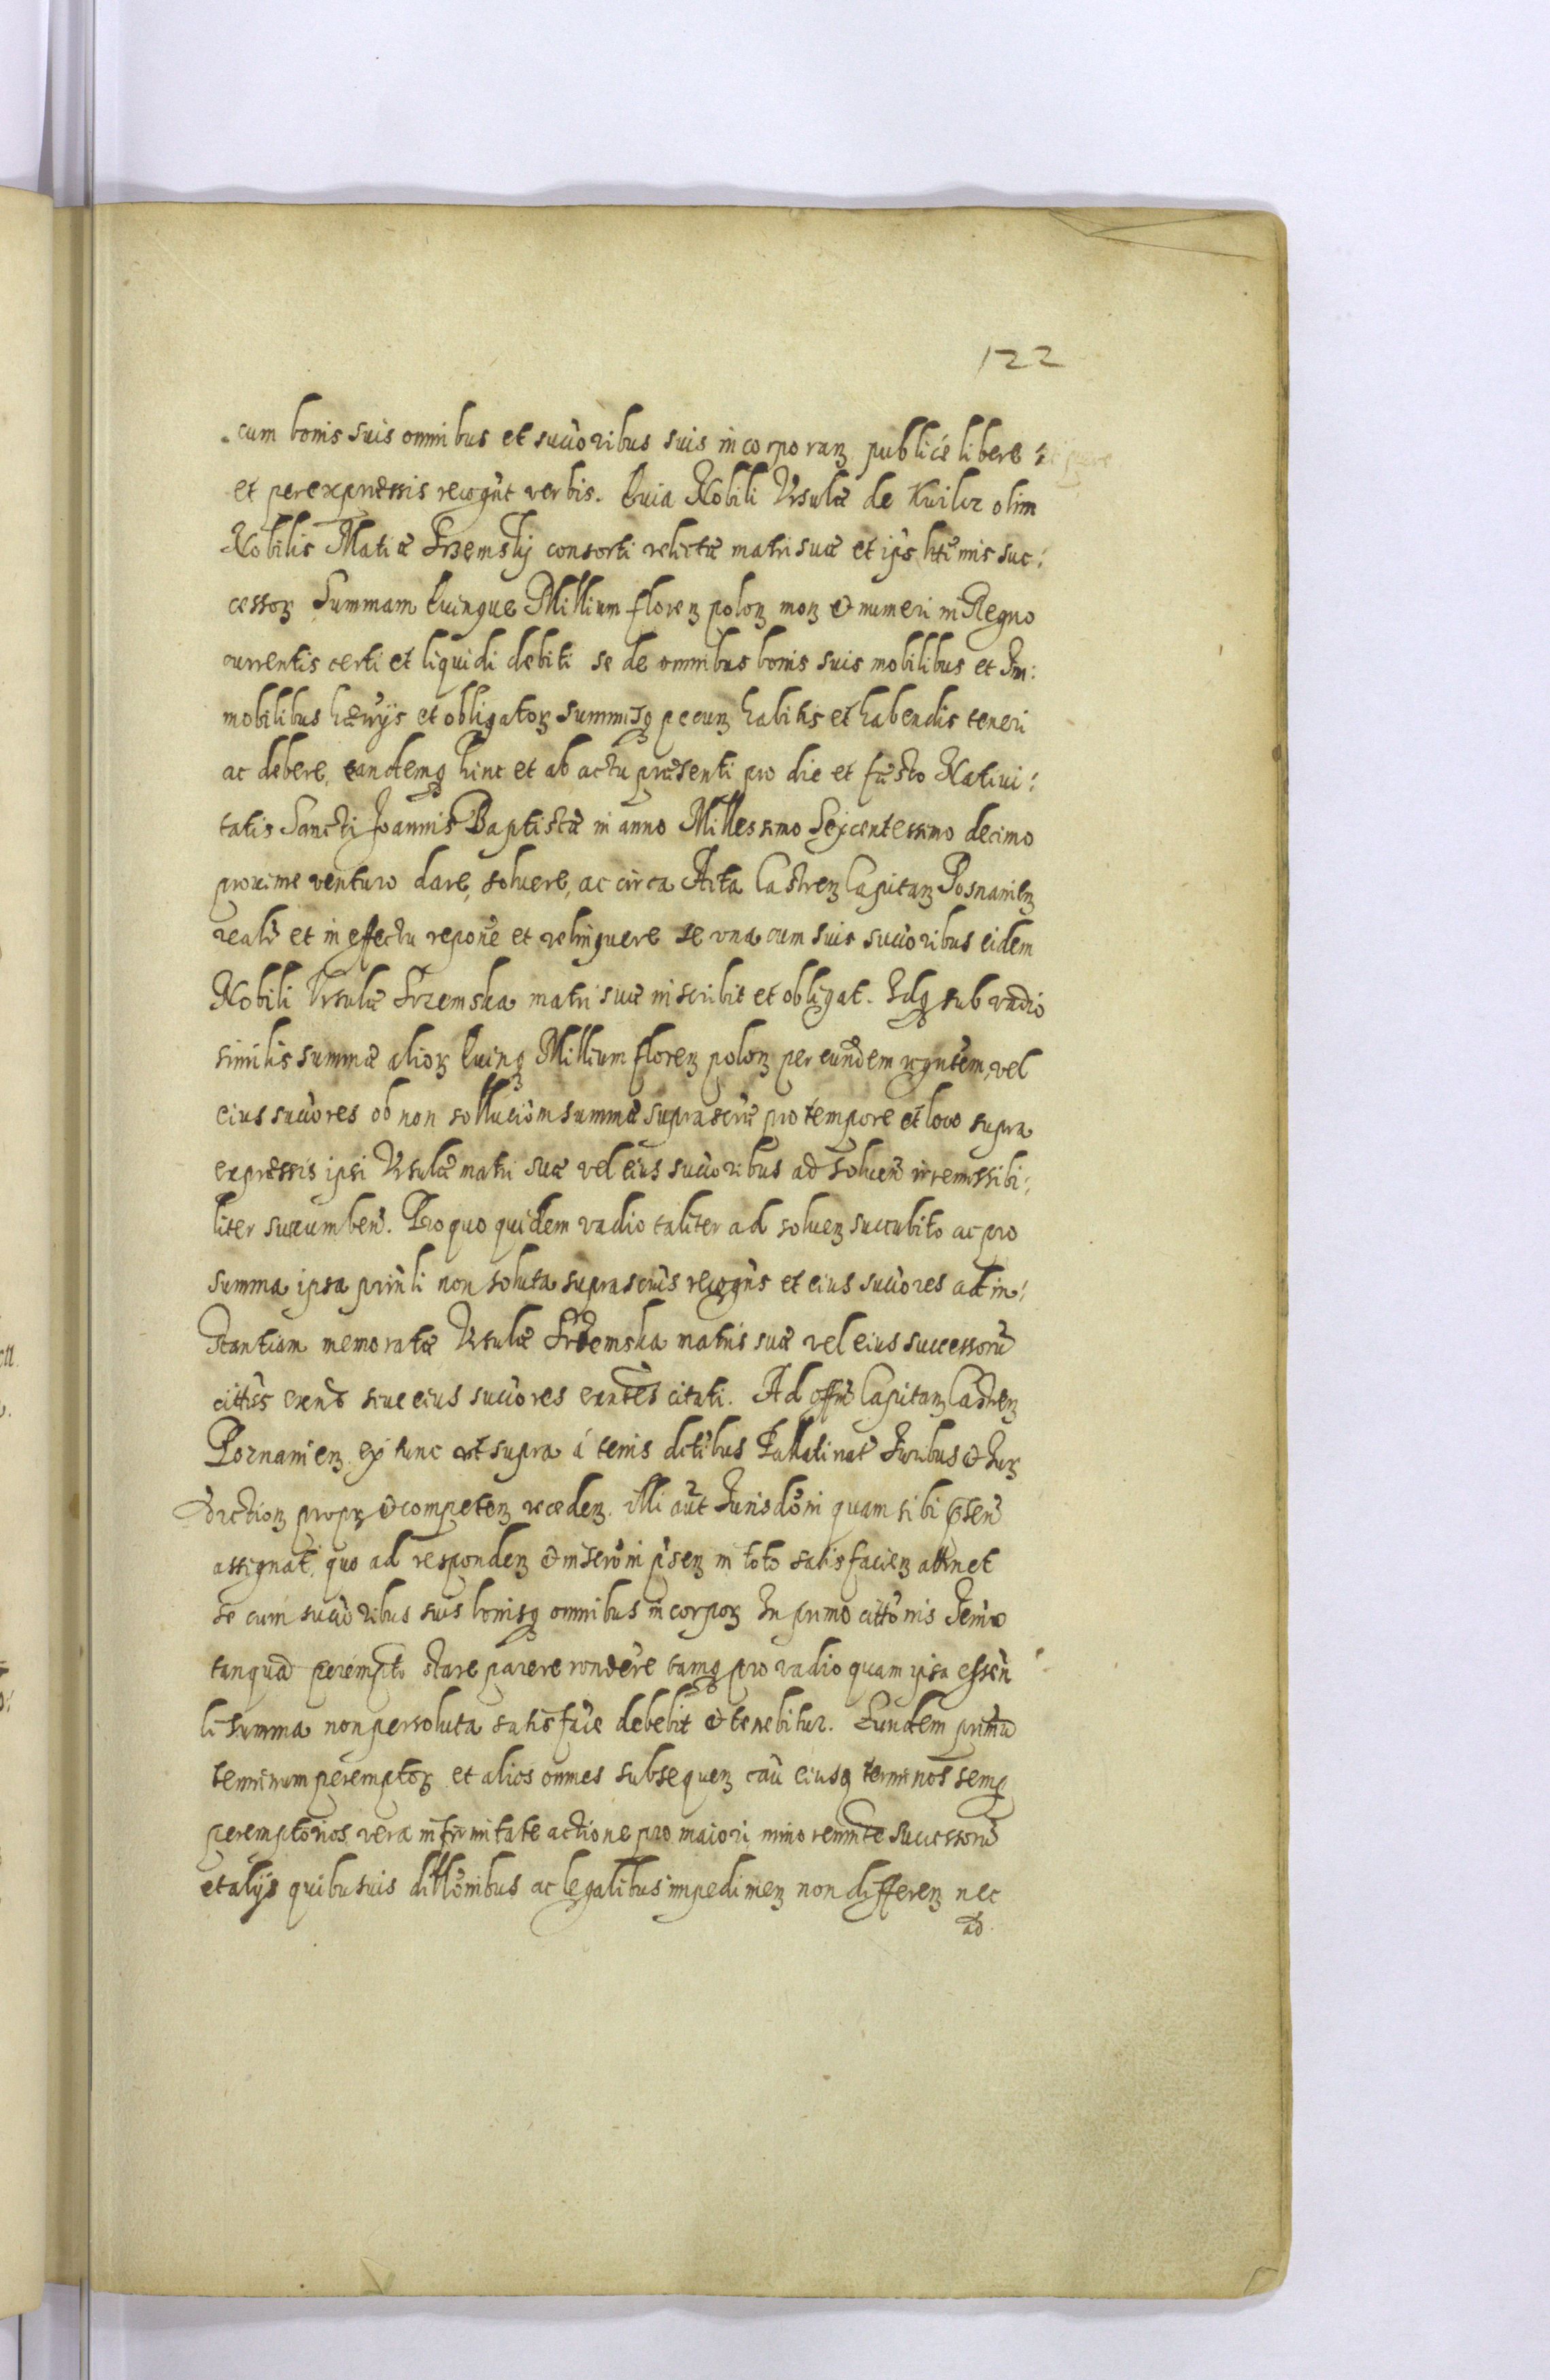 122
cum bonis suis omnibus et succoribus suis incorporan publice libere et pure
et per expressis recognt verbis. Quia Nobili Ursulæ de Kuilcz olim
Nobilis Matiæ Srzemskij consorti relictæ matri suæ et ips lttimis suc:
cessor Summam Quinque Millium floren polon mon et numeri in Regno
currentis certi et liquidi debiti se de omnibus bonis suis mobilibus et Im:
mobilibus hæredijs et obligator summisq pecun habitis et habendis teneri
ac debere, eandemq hinc et ab actu præsenti pro die et fæsto Natiui:
tatis Sancti Joannis Baptistæ in anno Millessimo Sexcentessimo decimo
proxime venturo dare, soluere, ac circa Acta Castren Capitan Posnanien
realr et in effectu repone et relinquere se vna cum suis succoribus eidem
Nobili Vrsulæ Srzemska matri suæ inscribit et obligat. Idq sub vadio
similis summæ alior Quinq Millium floren polon per eundem recgntem, vel
eius succores ob non sollucionm summæ suprascræ pro tempore et loco supra
expressis ipsi Vrsulæ matri suæ vel eius succoribus ad soluen irremissibi:
liter succumben. Pro quo quidem vadio taliter ad soluen succubito ac pro
summa ipsa prinli non soluta suprascrus recogns et eius succores ad in:
stantiam memoratæ Vrsulæ Srzemska matris suæ vel eius successoru
cittus exens siue eius succores exntes citati. Ad offm Capitan Castren
Poznanien ex tunc ut supra á terris dctibus Pallatinat Juribus et Jur
diction propr et competen recden. illi aut Jurisdoni quam sibi psens
assignat, quo ad responden et inseroni psen in toto satisfacien attinet
se cum succoribus suis bonisq omnibus incorpor In primo cittonis termo
tanqua perempto stare parere rondere tamq pro vadio quam ipsa essen
li summa non persoluta satisface debebit et tenebitur. Eundem primu
terminum peremptor et alios omnes subsequen cau eiusq terminos semp
peremptorios vera infirmitate actione pro maiori minorennte successoru
et alijs quibusuis dillonibus ac legalibus impedimen non differen nec
ad